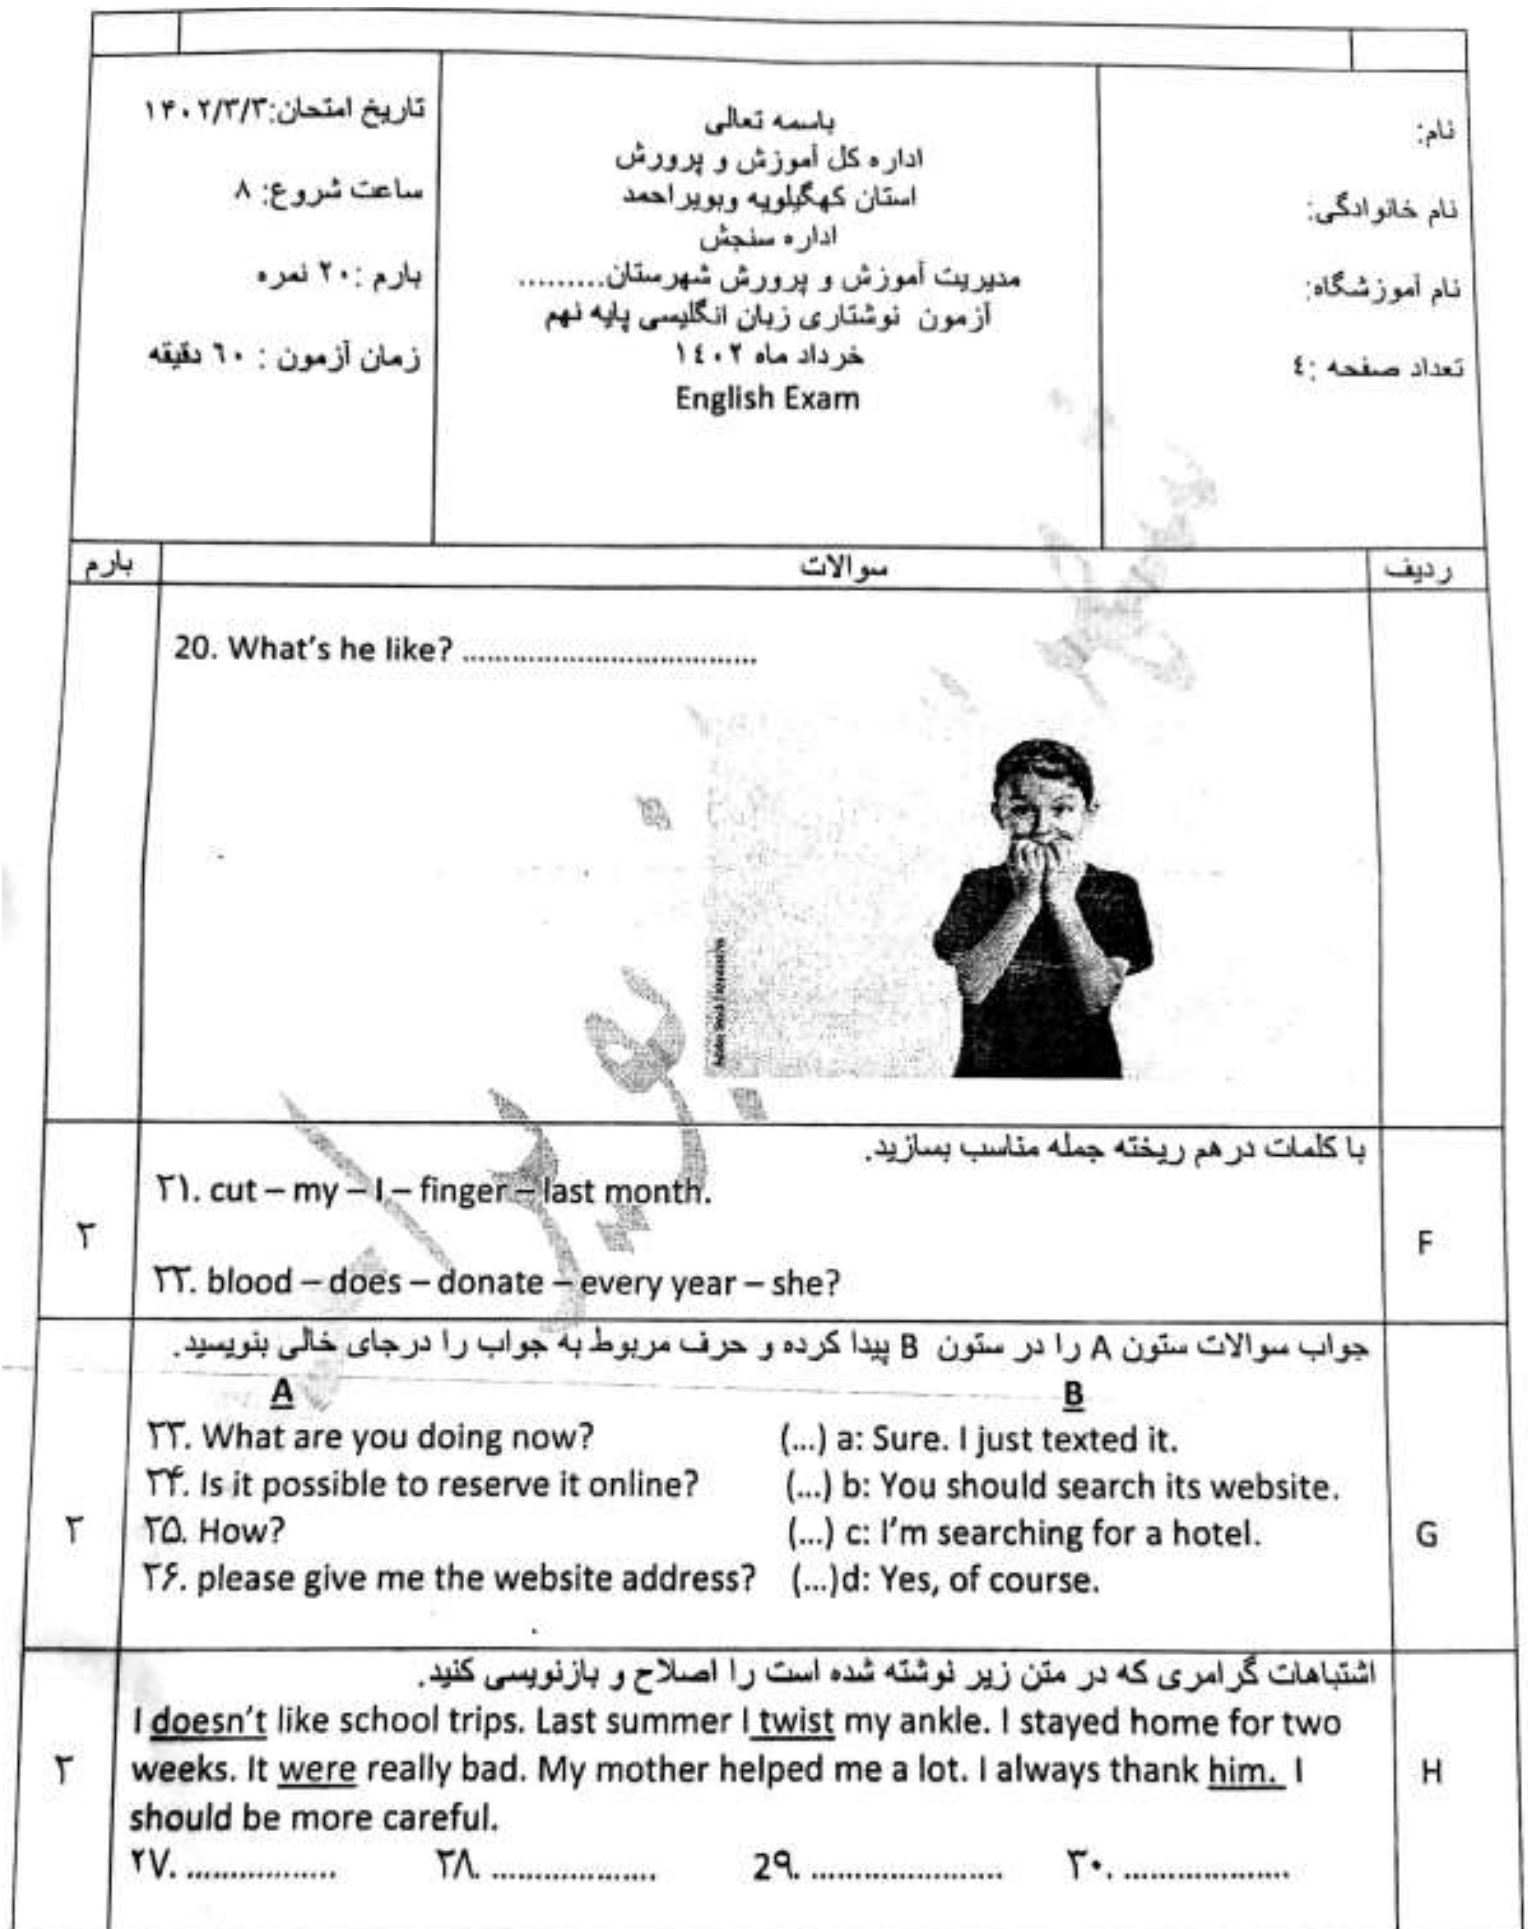 نام:
نام خانوادگی:
نام آموزشگاه:
تعداد صفحه :٤
باسمه تعالی
اداره کل آموزش و پرورش
استان کهگیلویه وبویراحمد
اداره سنجش
مدیریت آموزش و پرورش شهرستان.........
آزمون نوشتاری زبان انگلیسی پایه نهم
خرداد ماه ١٤٠٢
English Exam
تاریخ امتحان:۱۴۰۲/۳/۳
ساعت شروع: ۸
بارم :۲۰ نمره
زمان آزمون : ٦٠ دقیقه
ردیف
سوالات
بارم
20. What's he like? ....................................
با کلمات درهم ریخته جمله مناسب بسازید.
۲۱. cut – my – I – finger – last month.
۲
F
۲۲. blood – does – donate – every year – she?
جواب سوالات ستون A را در ستون B پیدا کرده و حرف مربوط به جواب را درجای خالی بنویسید.
A B
۲۳. What are you doing now? (...) a: Sure. I just texted it.
۲۴. Is it possible to reserve it online? (...) b: You should search its website.
۲۵. How? (...) c: I'm searching for a hotel.
۲
G
۲۶. please give me the website address? (...)d: Yes, of course.
اشتباهات گرامری که در متن زیر نوشته شده است را اصلاح و بازنویسی کنید.
I doesn't like school trips. Last summer I twist my ankle. I stayed home for two
weeks. It were really bad. My mother helped me a lot. I always thank him. I
۲
H
should be more careful.
۲۷. ................ ۲۸. .................. 29. .................... ۳۰. ..................